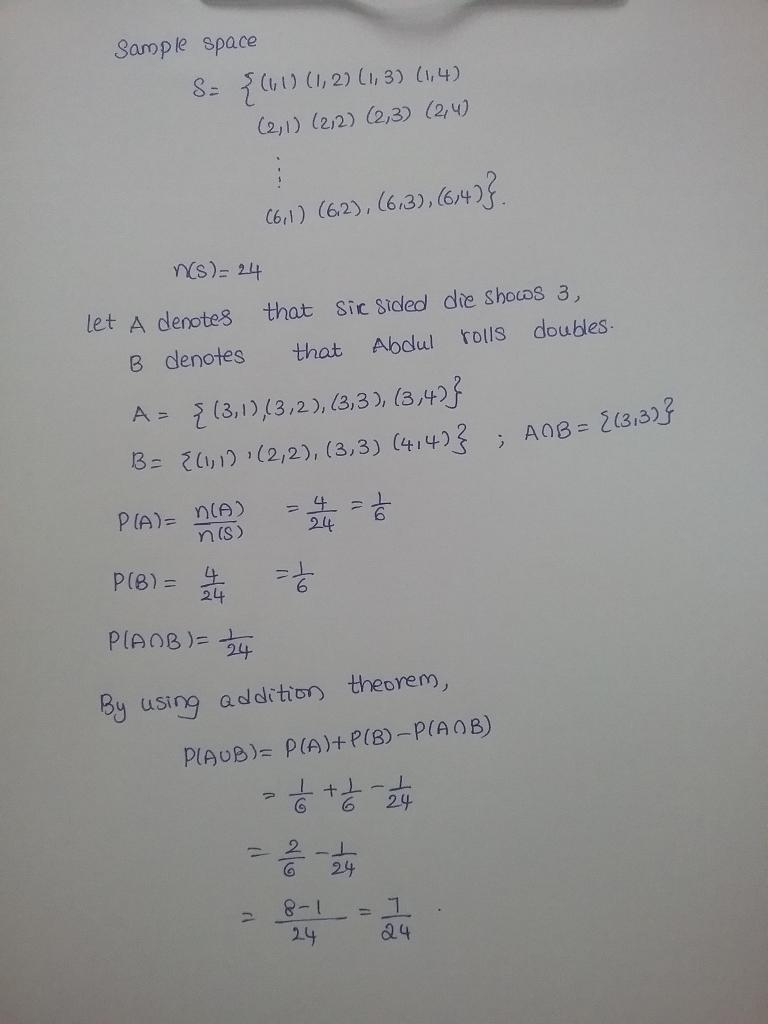 Sample space
S= {(1,1) (1,2) (1,3) (1,4)
(2,1) (2,2) (2,3) (2,4)
⋮
(6,1) (6,2), (6,3), (6,4)}.
n(S)= 24
let A denotes that six sided die shows 3,
B denotes that Abdul rolls doubles.
A = {(3,1),(3,2),(3,3),(3,4)}
B= {(1,1),(2,2),(3,3) (4,4)} ; A∩B = {(3,3)}
P(A)= n(A)/n(S) = 4/24 = 1/6
P(B) = 4/24 = 1/6
P(A∩B)= 1/24
By using addition theorem,
P(A∪B)= P(A)+P(B)-P(A∩B)
= 1/6 + 1/6 - 1/24
= 2/6 - 1/24
= 8-1/24 = 7/24 .